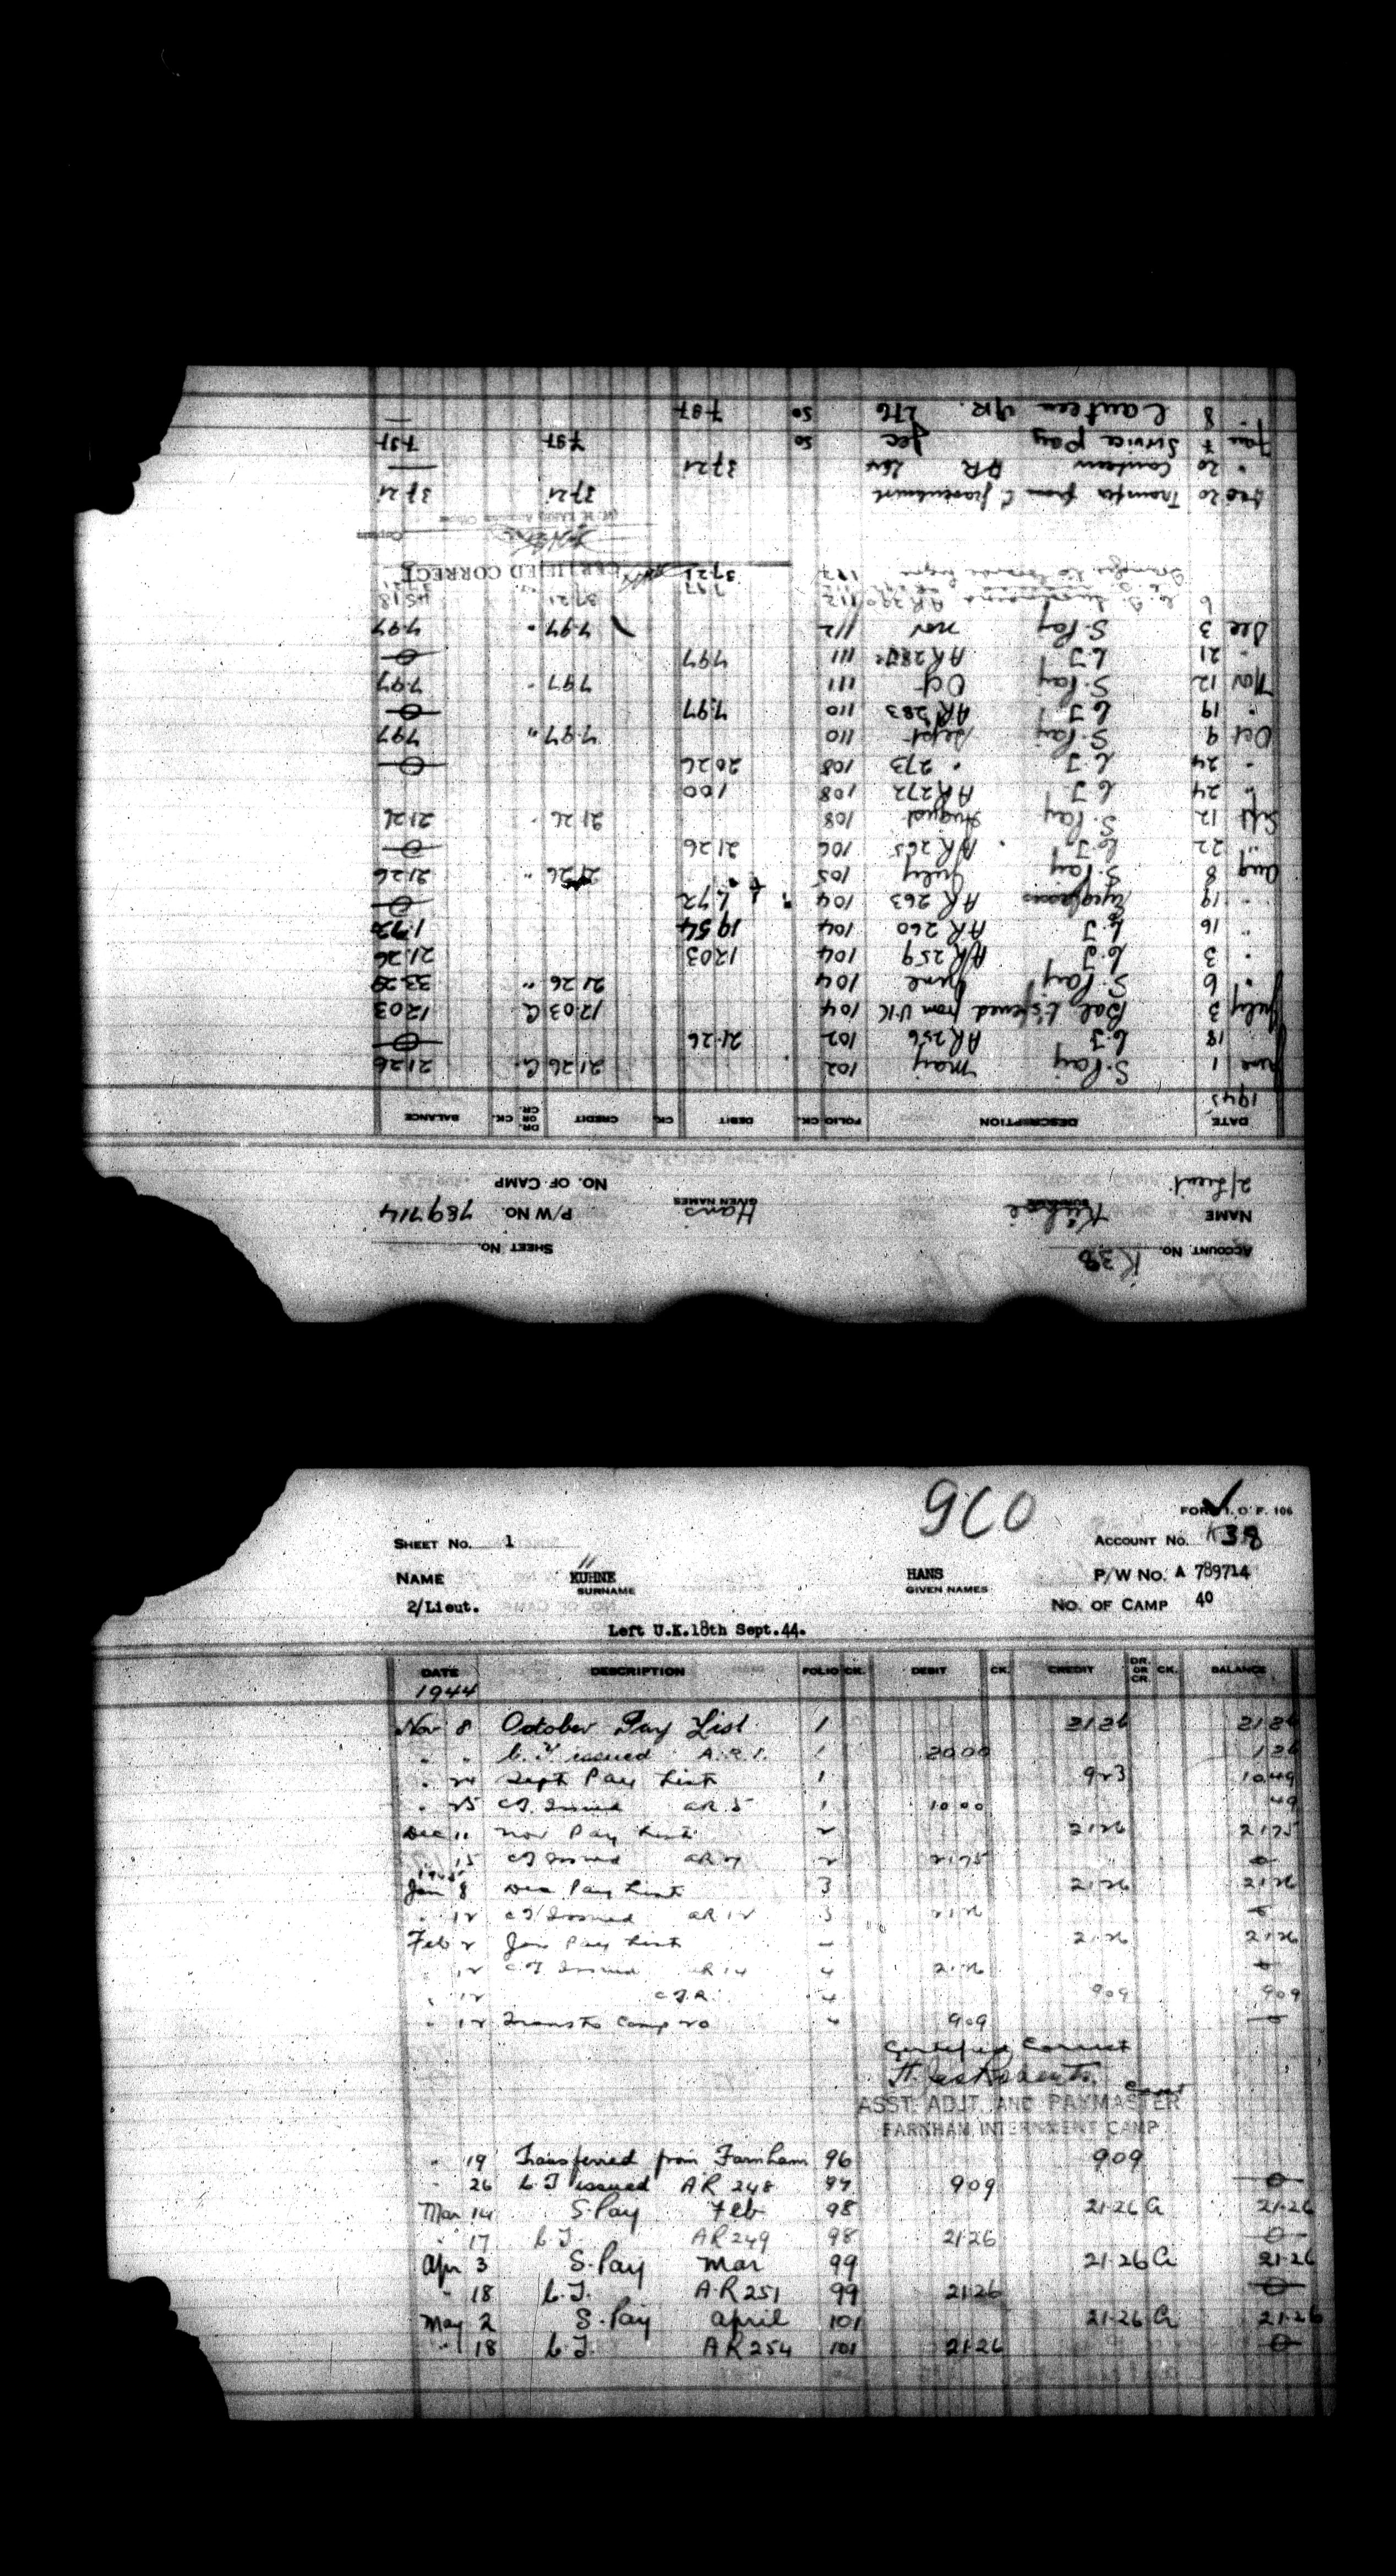 9CO
FORM I. O. P. 106
SHEET No. 1
ACCOUNT No. K38
NAME KÜHNE HANS P/W No. A 789714
SURNAME GIVEN NAMES
2/Lieut. No. OF CAMP 40
Left U.K.18th Sept.44.
DATE DESCRIPTION FOLIO CK. DEBIT CK. CREDIT DR. OR CR. CK. BALANCE
1944
Nov 8 October Pay List 1 21 26 21 26
" " C.T. issued A.R.1. 1 20 00 1 26
" 24 Sept Pay List 1 9 23 10 49
" 25 CT. Issued AR 5 1 10 00 49
Dec 11 Nov Pay List 2 21 26 21 75
" 15 CT Issued AR 2 21 75 0
1945
Jan 8 Dec Pay List 3 21 26 21 26
" 12 CT Issued AR 12 3 21 26 0
Feb 2 Jan Pay List 21 26 21 26
" 12 CT Issued AR 14 4 21 26 0
" 12 C.T.R. 4 9 09 9 09
" 12 Trans to Camp 20 4 9 09
Certified Correct
Capt
ASST. ADJT. AND PAYMASTER
FARNHAM INTERNMENT CAMP
" 19 Transferred from Farnham 96 9 09
" 26 C.T issued AR 248 97 9 09 0
Mar 14 S. Pay Feb 98 21.26 Cr 21.26
" 17 C.T. AR 249 98 21.26 0
Apr 3 S. Pay Mar 99 21.26 Cr 21.26
" 18 C.T. A.R 251 99 21 26 0
May 2 S. Pay April 101 21.26 Cr 21.26
" 18 C.T. AR 254 101 21.26 0
ACCOUNT No. K 38 SHEET No.
NAME Kühne Hans P/W No. 789714
SURNAME GIVEN NAMES
2/Lieut NO. OF CAMP
DATE DESCRIPTION FOLIO CK. DEBIT CK. CREDIT DR. OR CR. CK. BALANCE
1945
June 1 S. Pay May 102 21 26 Cr 21 26
18 C.T AR 256 102 21.26 0
July 3 Bal. t'sfered from U.K 104 12 03 Cr 12 03
" 6 S. Pay June 104 21 26 " 33 29
" 3 C.T AR 259 104 12 03 21 26
" 16 C.T AR 260 104 19 54 1.72
" 19 Eyeglasses AR 263 104 1 72 0
Aug 8 S. Pay July 105 21 26 " 21 26
" 22 C.T. AR 265 106 21 26 0
Sept 12 S. Pay August 108 21 26 " 21 26
" 24 C.T AR 272 108 1 00
" 24 C.T " 273 108 20 26 0
Oct 9 S. Pay Sept 110 7.97 " 7 97
" 19 C.T AR 283 110 7.97 0
Nov 12 S. Pay Oct 111 7 97 " 7.97
" 21 C.T AR 287 111 7 97 0
Dec 3 S. Pay Nov 112 7.97 " 7.97
6 AR 290 112 37 21 45 18
7.97
37.21
CERTIFIED CORRECT
Captain
Dec 20 Transfer from 37 21 37 21
" 20 Canteen AR 264 37 21
Jan 7 Service Pay Dec 50 7 97 7.97
" 8 Canteen AR. 276 50 7.97